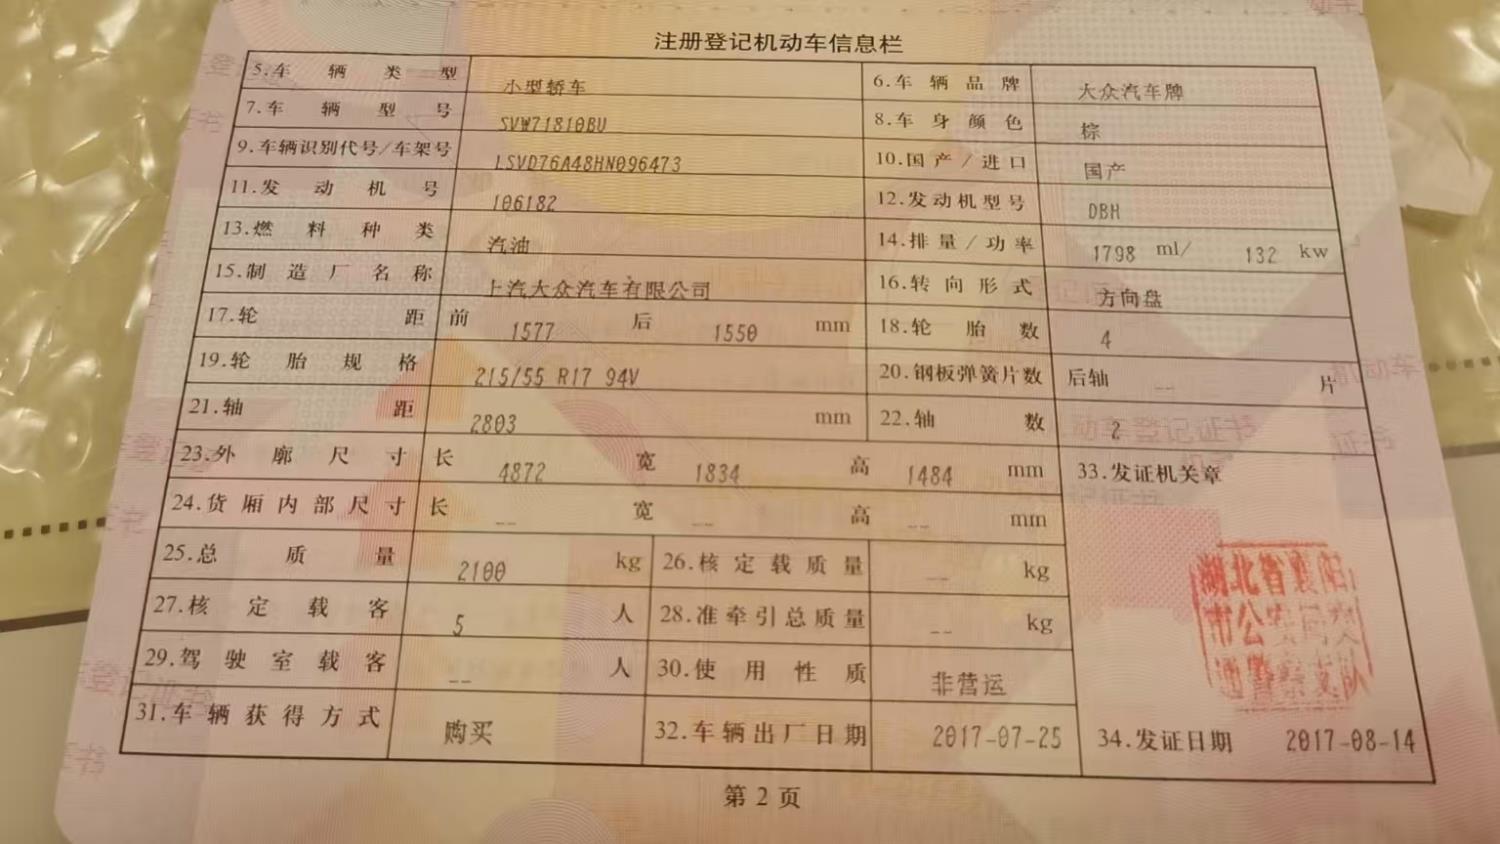 注册登记机动车信息栏
5.车辆类型 小型轿车 6.车辆品牌 大众汽车牌
7.车辆型号 SVW71810BU 8.车身颜色 棕
9.车辆识别代号/车架号 LSVD76A48HN096473 10.国产/进口 国产
11.发动机号 106182 12.发动机型号 DBH
13.燃料种类 汽油 14.排量/功率 1798 ml/ 132 kw
15.制造厂名称 上汽大众汽车有限公司 16.转向形式 方向盘
17.轮距 前 1577 后 1550 mm 18.轮胎数 4
19.轮胎规格 215/55 R17 94V 20.钢板弹簧片数 后轴 -- 片
21.轴距 2803 mm 22.轴数 2
23.外廓尺寸 长 4872 宽 1834 高 1484 mm 33.发证机关章
24.货厢内部尺寸 长 -- 宽 -- 高 -- mm
25.总质量 2100 kg 26.核定载质量 -- kg
27.核定载客 5 人 28.准牵引总质量 -- kg
29.驾驶室载客 -- 人 30.使用性质 非营运
31.车辆获得方式 购买 32.车辆出厂日期 2017-07-25 34.发证日期 2017-08-14
湖北省襄阳
市公安局交
通警察支队
第2页